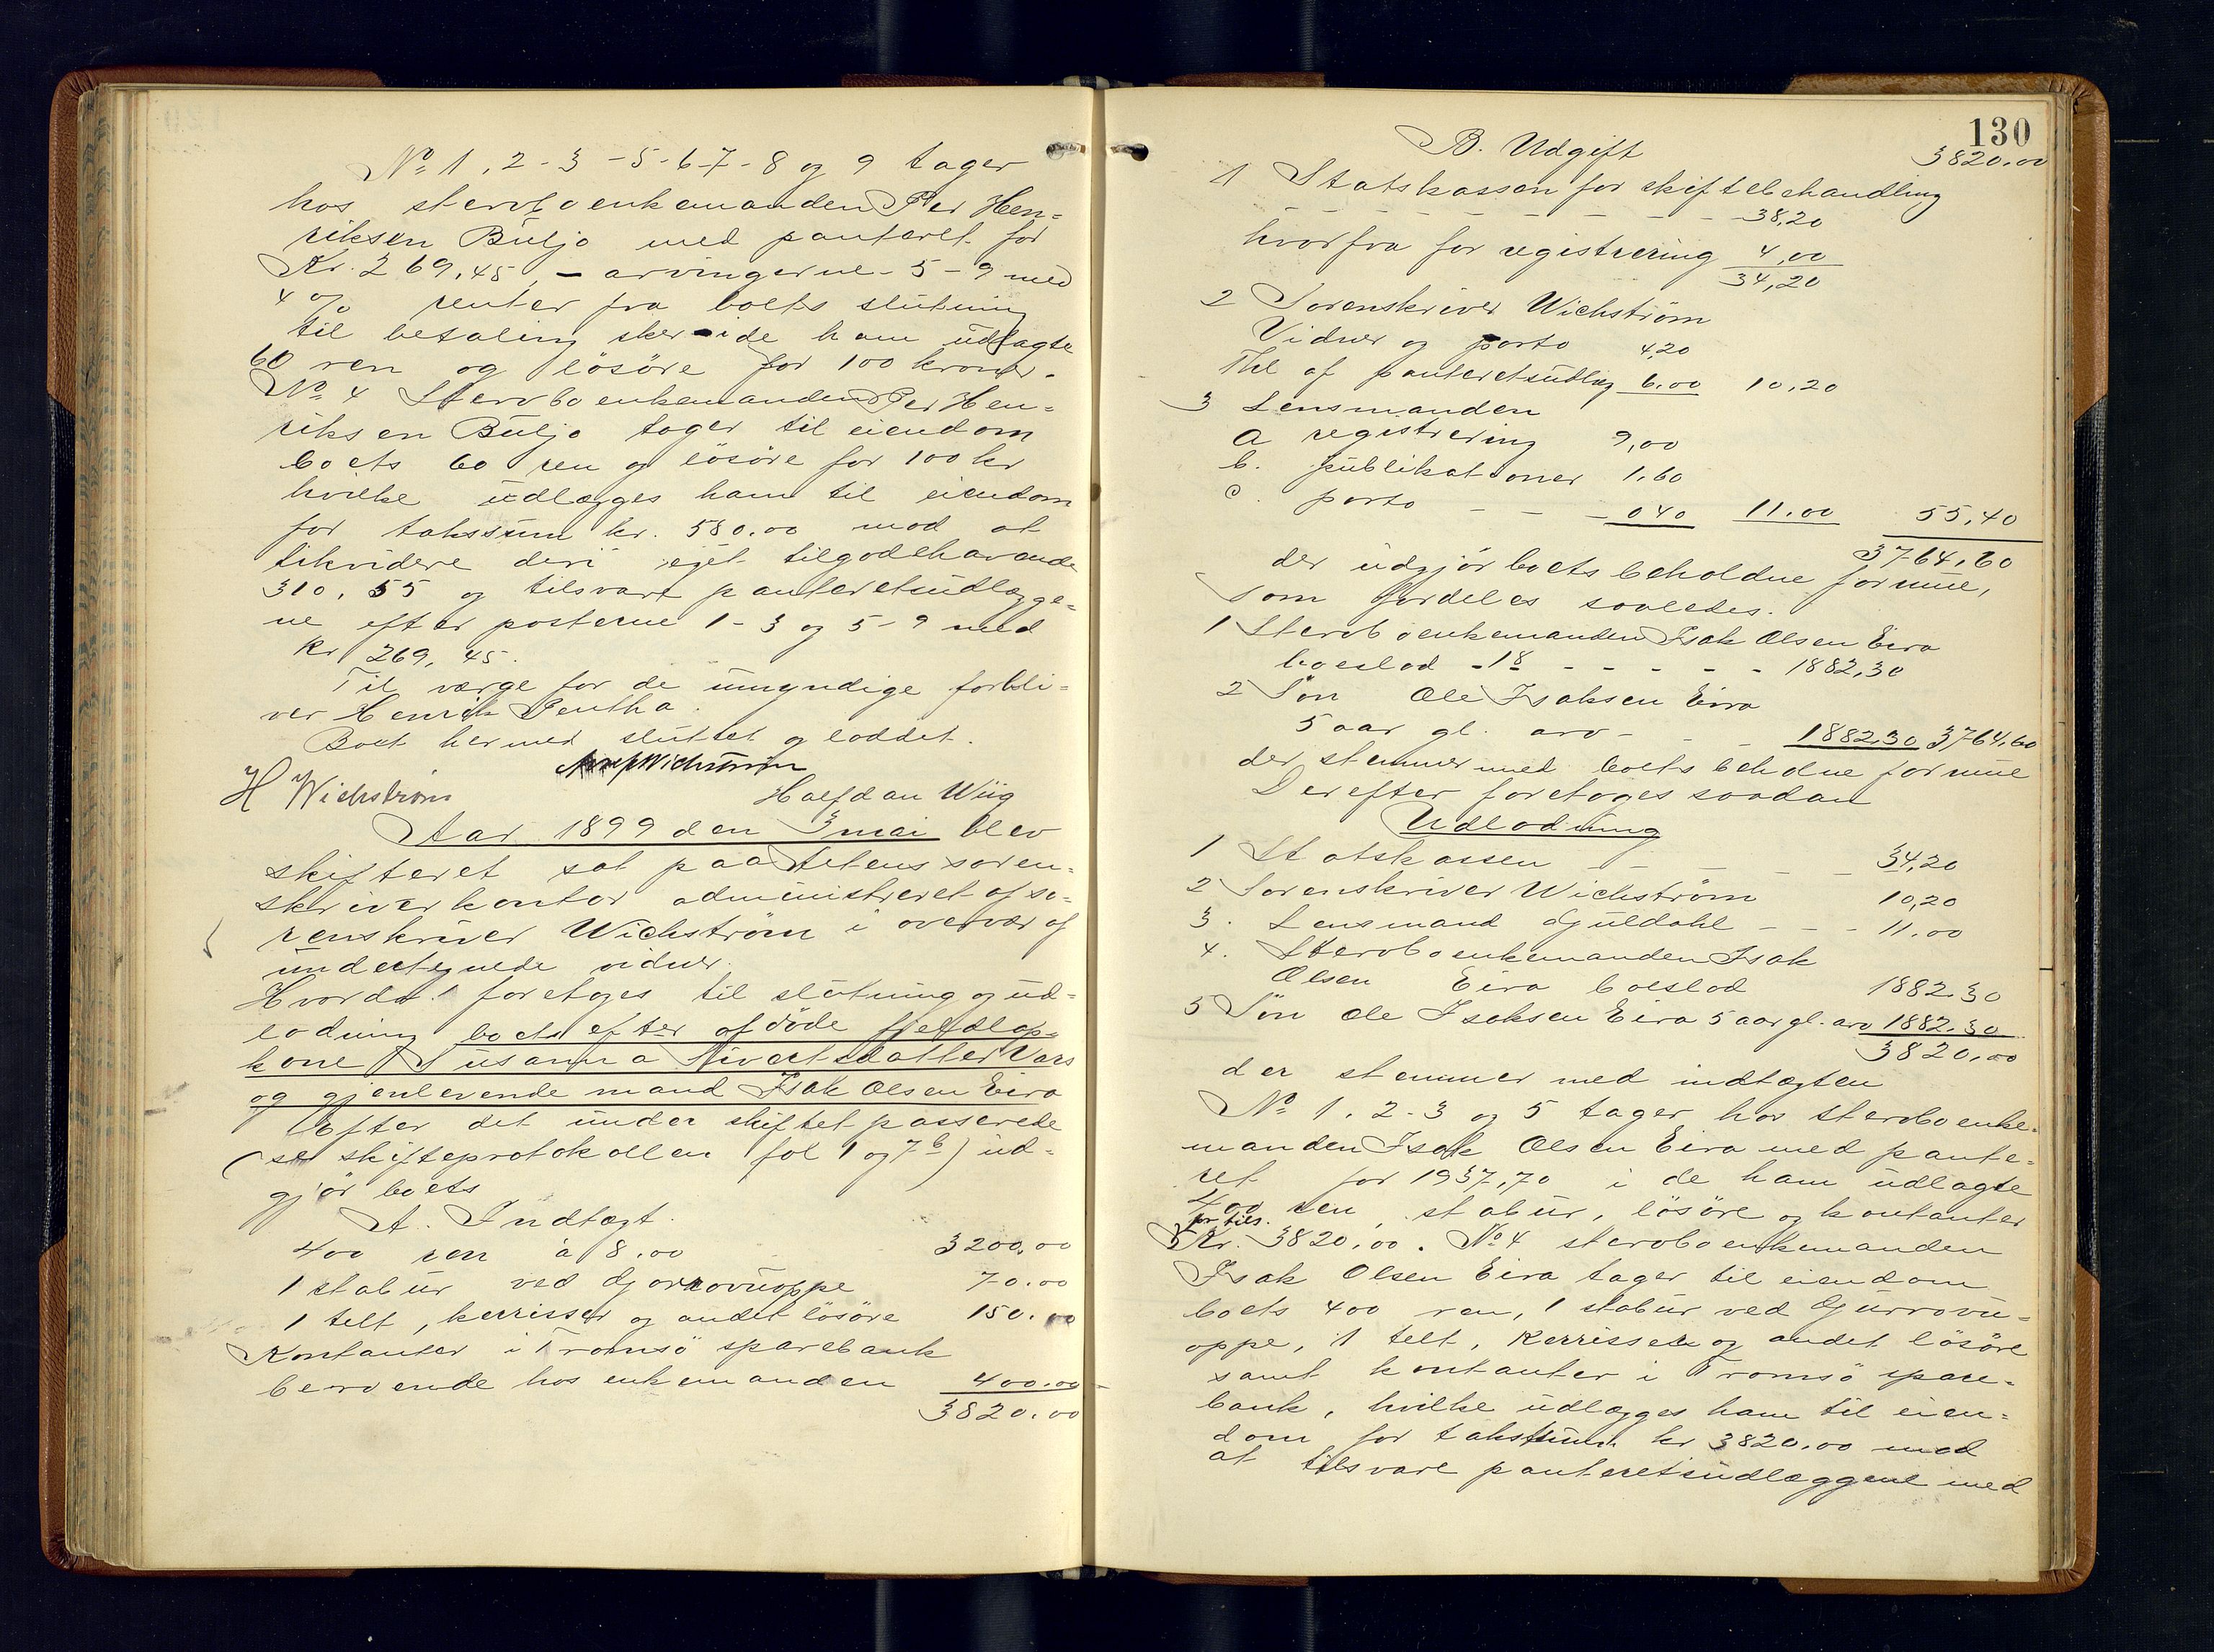 No 1, 2 - 3 - 5 - 6 - 7 - 8 og 9 tager
hos stervboenkemanden Per Hen=
riksen Buljo med panteret for
Kr. 269,45, - arvingerne - 5 - 9 med
4 % renter fra boets slutning
til betaling sker - i de ham udlagte
60 ren og lösöre for 100 kroner.
No 4 Stervboenkemanden Per Hen=
riksen Buljo tager til eiendom
boets 60 ren og lösöre for 100 kr
hvilke udlægges ham til eiendom
for takssum kr. 580.00 mod at
likvidere deri eget tilgodehavende
310,55 og tilsvare panteretsudlægge=
ne efter posterne 1 - 3 og 5 - 9 med
Kr 269,45.
Til værge for de umyndige forbli=
ver Henrik Pentha.
Boet hermed sluttet og loddet.
Wichström
H Wichström Halfdan Wiig
Aar 1899 den 3 mai blev
skifteret sat paa Altens soren=
skriverkontor administreret af so=
renskriver Wichström i overvær af
undertegnede vidner.
Hvorda! foretoges til slutning og ud=
lodning boets efter afdöde fjeldlap=
kone Susanna Sivertsdatter Vars
og gjenlevende mand Isak Olsen Eira
Efter det under skiftet passerede
(se skifteprotokollen fol 1 og 7b) ud=
gjör boets
A. Indtægt.
400 ren à 8.00 3200,00
1 stabur ved Gjorrovuoppe 70.00
1 telt, kerrisser og andet lösöre 150.00
Kontanter i Tromsö sparebank
beroende hos enkemanden 400.00
3820.00
130
B. Udgift 3820.00
1 Statskassen for skiftebehandling
- - - - - - - - 38,20
hvorfra for registrering 4,00
34,20
2 Sorenskriver Wichström
Vidner og porto 4,20
Thl af panteretsudlæg 6.00 10,20
3 Lensmanden
a registrering 9,00
b. publikationer 1.60
c. porto - - - 0 40 11.00 55,40
3764,60
der udgjör boets beholdne formue,
som fordeles saaledes.
1 Stervboenkemanden Isak Olsen Eira
boeslod - - - - - - 1882,30
2 Sön Ole Isaksen Eira
5 aar gl. arv - - - 1882,30 3764,60
der stemmer med boets beholdne formue
Derefter foretoges saadan
Udlodning
1 Statskassen - - - - - 34,20
2 Sorenskriver Wichström 10,20
3. Lensmand Gjuldahl - - - 11.00
4. Stervboenkemanden Isak
Olsen Eira boeslod 1882.30
5 Sön Ole Isaksen Eira 5 aar gl. arv 1882.30
3820,00
der stemmer med indtægten
No 1. 2 - 3 og 5 tager hos stervboenke=
manden Isak Olsen Eira med pante=
ret for 1937,70 i de ham udlagte
400 ren, stabur, lösöre og kontanter
for tils.
Kr. 3820,00. No 4 stervboenkemanden
Isak Olsen Eira tager til eiendom
boets 400 ren, 1 stabur ved Gjurrovu=
oppe, 1 telt, Kerrisser og andet lösöre
samt kontanter i Tromsö spare=
bank, hvilke udlægges ham til eien=
dom for takssum kr 3820.00 mod
at tilsvare panteretsudlæggene med